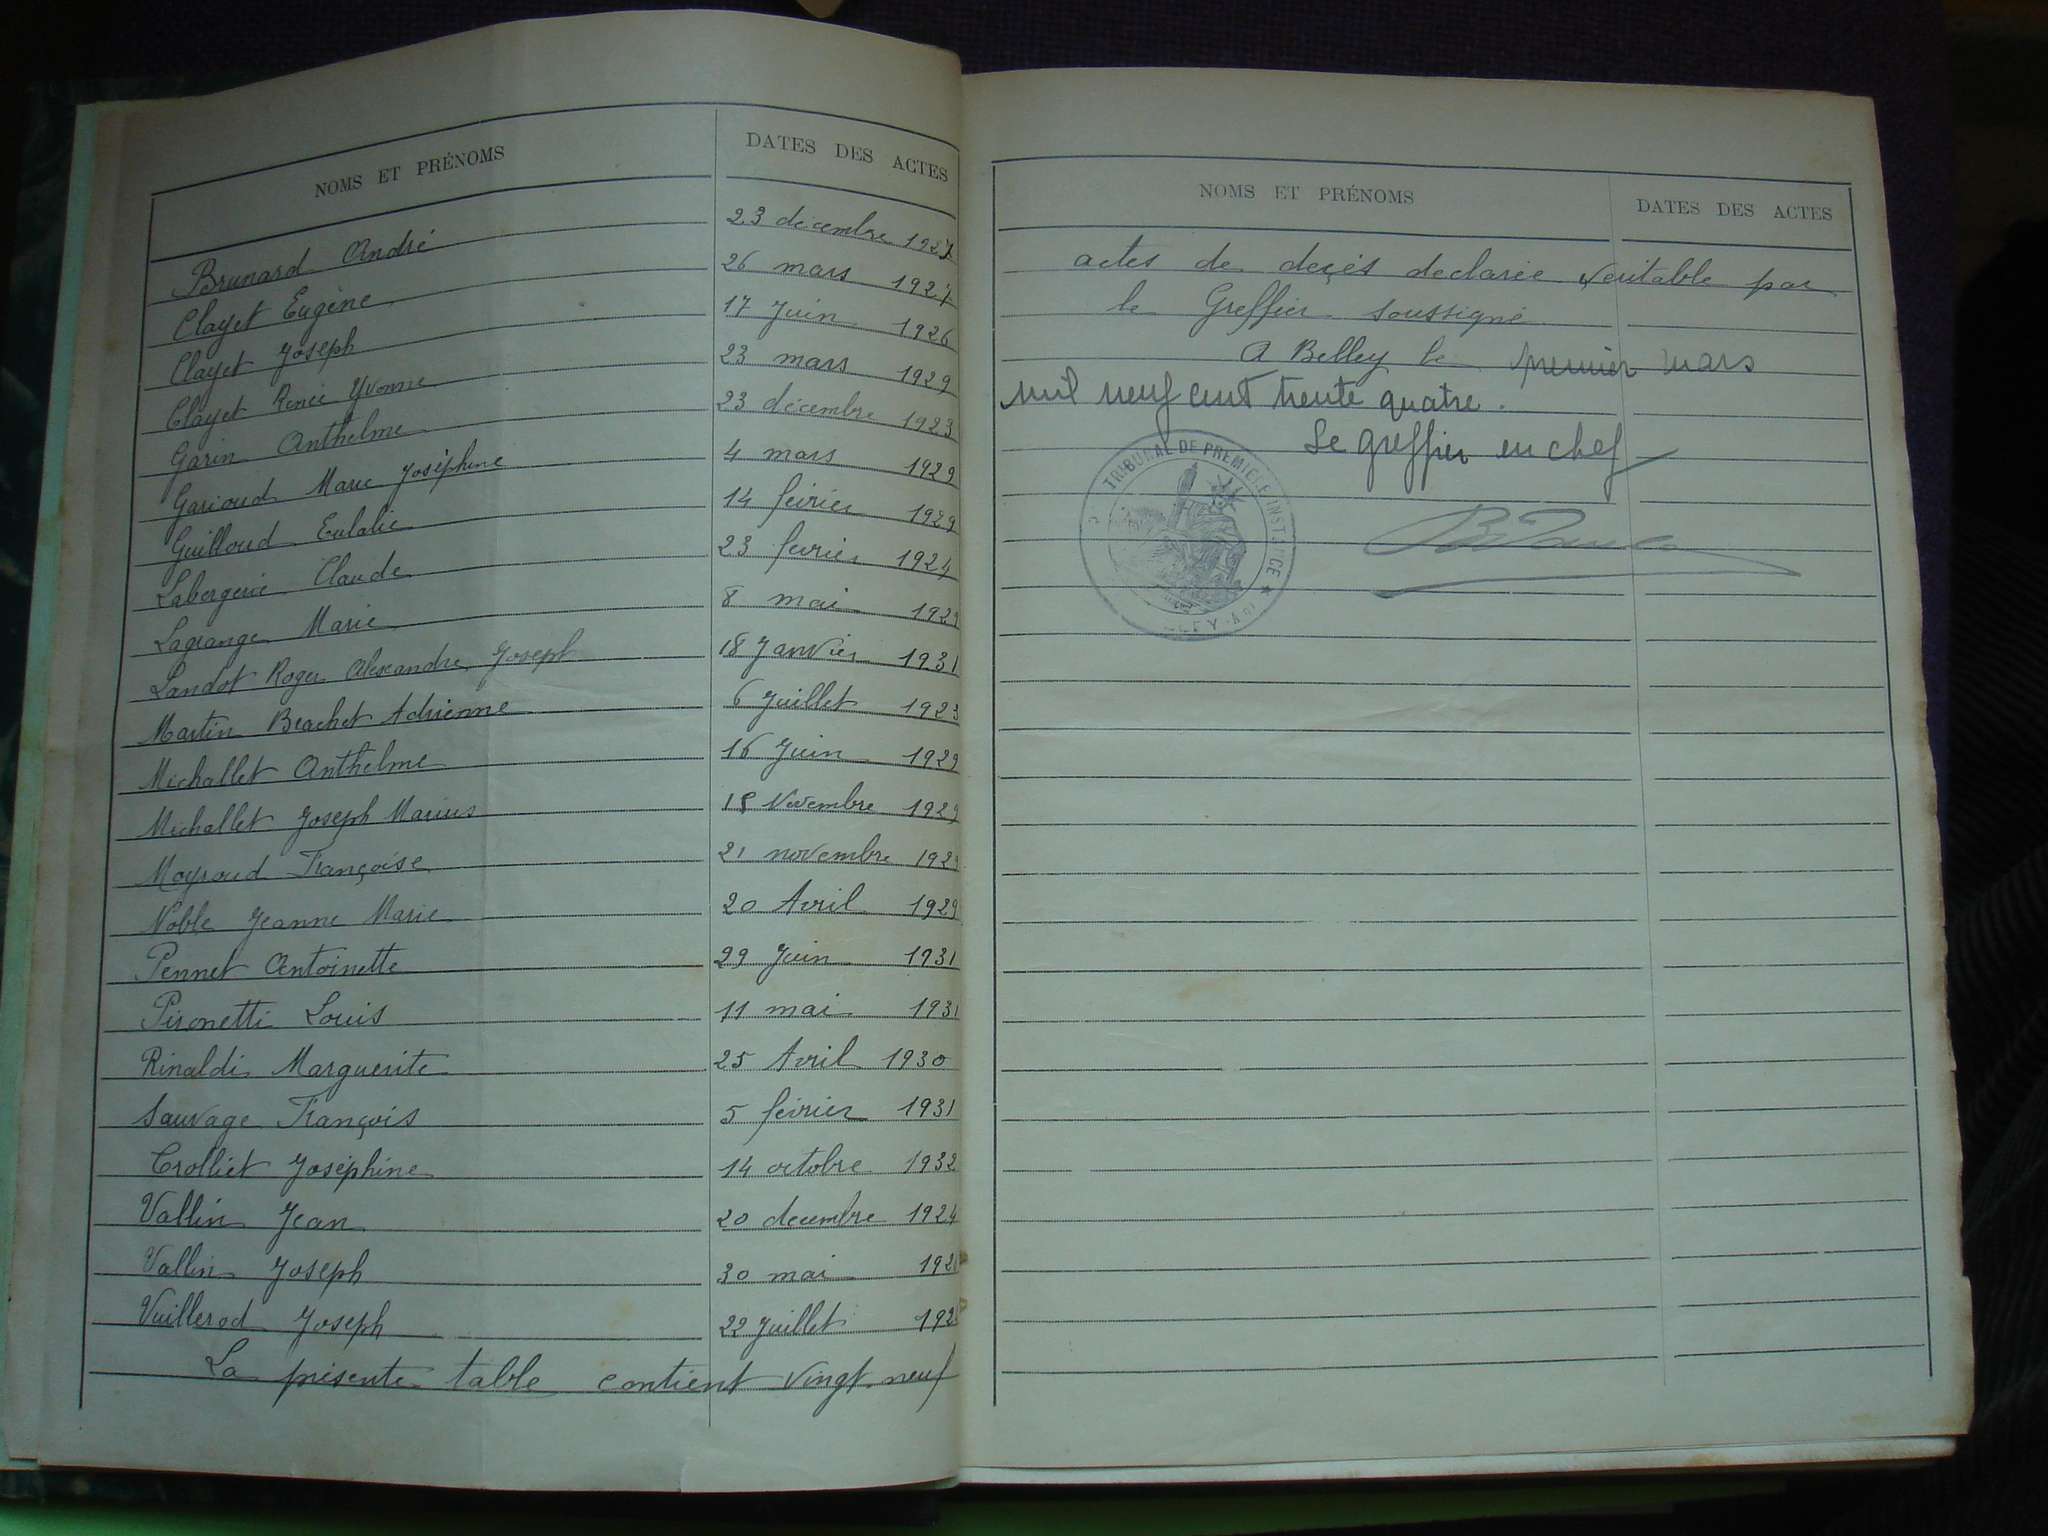 NOMS ET PRÉNOMS DATES DES ACTES
Brunard André 23 décembre
Clayet Eugène 26 mars 1927
Clayet Joseph 17 Juin 1926
Clayet Renée Yvonne 23 mars 1929
Garin Anthelme 23 décembre 1923
Garioud Marie Joséphine 4 mars 1929
Guilloud Eulalie 14 février 1929
Labergerie Claude 23 fevrier 1924
Lagrange Marie 8 mai
Landot Roger Alexandre Joseph 18 Janvier 1931
Martin Brachet Adrienne 6 Juillet 1923
Michallet Anthelme 16 Juin 1929
Michallet Joseph Marius Novembre
Moyroud Françoise 21 novembre
Noble Jeanne Marie 20 Avril 1929
Pennet Antoinette 29 Juin 1931
Pironetti Louis 11 mai 1931
Rinaldi Marguerite 25 Avril 1930
Sauvage François 5 février 1931
Crolliet Joséphine 14 octobre 1932
Vallin Jean 20 decembre 1924
Vallin Joseph 30 mai
Vuillerod Joseph 22 Juillet
La présente table contient vingt neuf
NOMS ET PRÉNOMS DATES DES ACTES
actes de deçés declarée veritable par
le Greffier soussigné
A Belley le premier mars
mil neuf cent trente quatre.
Le greffier en chef
TRIBUNAL DE PREMIERE INSTANCE